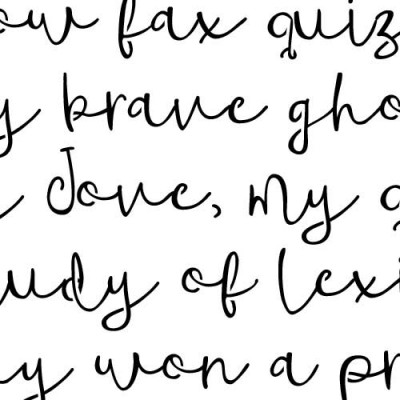 ow fax quiz
y brave gho
Jove, my q
udy of lexi
y won a pr